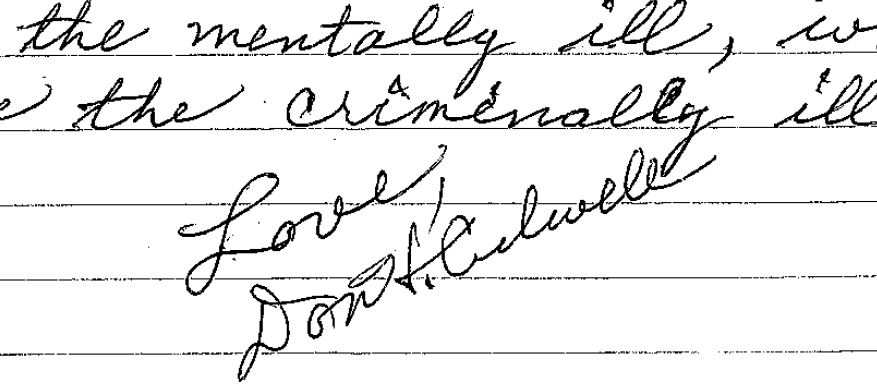 the mentally ill,
the criminally ill
Love,
Don